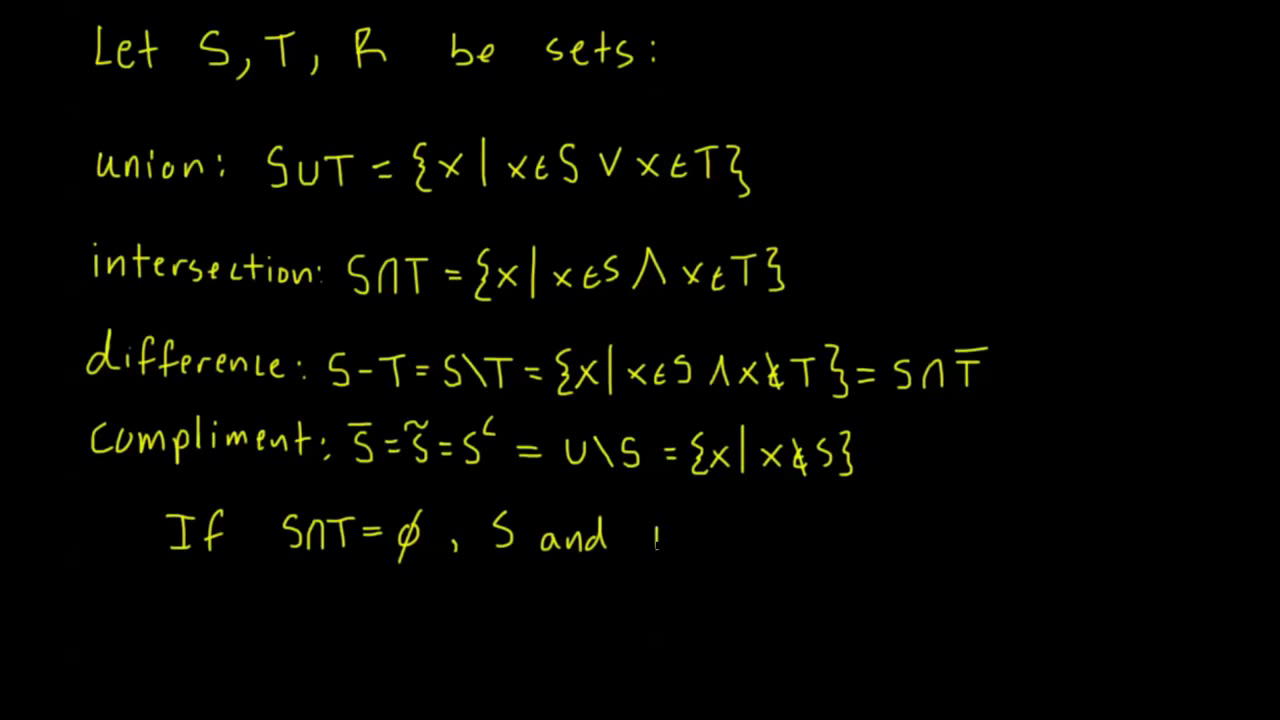 Let S, T, R be sets:
union: S∪T = {x | x∈S ∨ x∈T}
intersection: S∩T = {x | x∈S ∧ x∈T}
difference: S-T = S\T = {x | x∈S ∧ x∉T} = S∩T̅
Compliment: S̅ = S̃ = Sᶜ = U\S = {x | x∉S}
If S∩T = ∅, S and